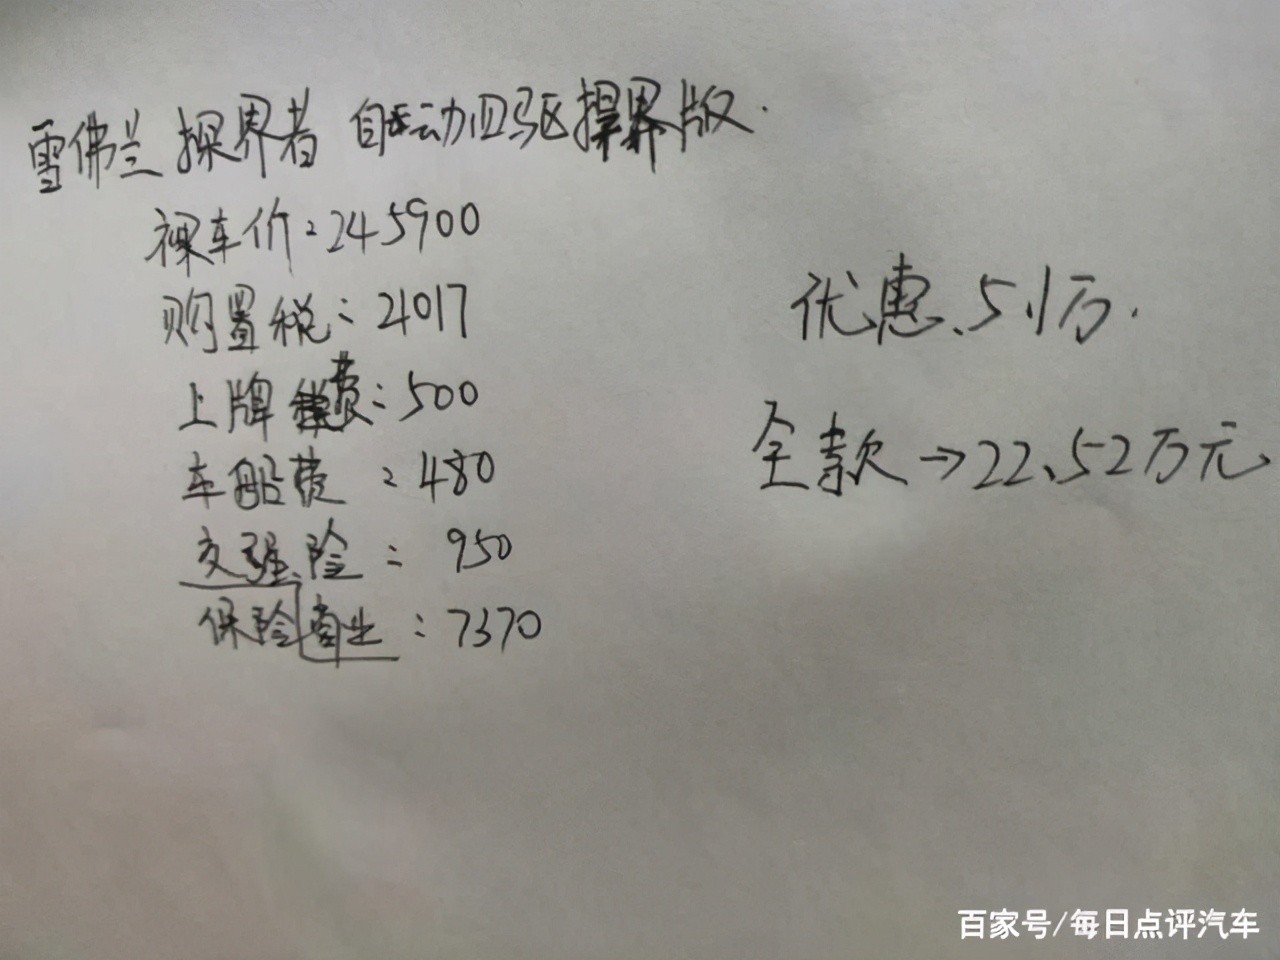 雪佛兰探界者 自动四驱捍界版.
裸车价:245900
购置税:21017
上牌费:500
车船费:480
交强险:950
保险商业:7370
优惠、5.1万.
全款→22.52万元
百家号/每日点评汽车